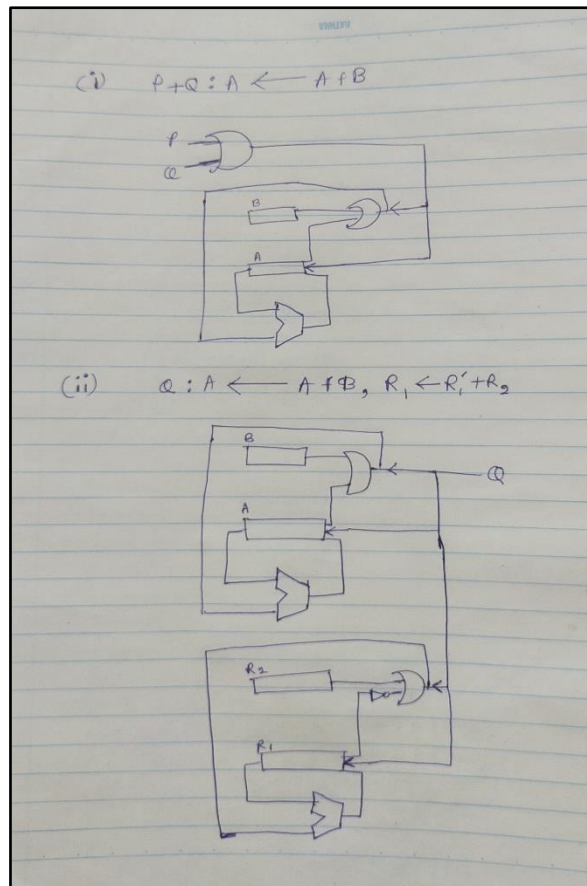 (i) P+Q : A ← A + B
P
Q
B
A
(ii) Q : A ← A + B, R₁ ← R₁' + R₂
B
Q
A
R2
R1